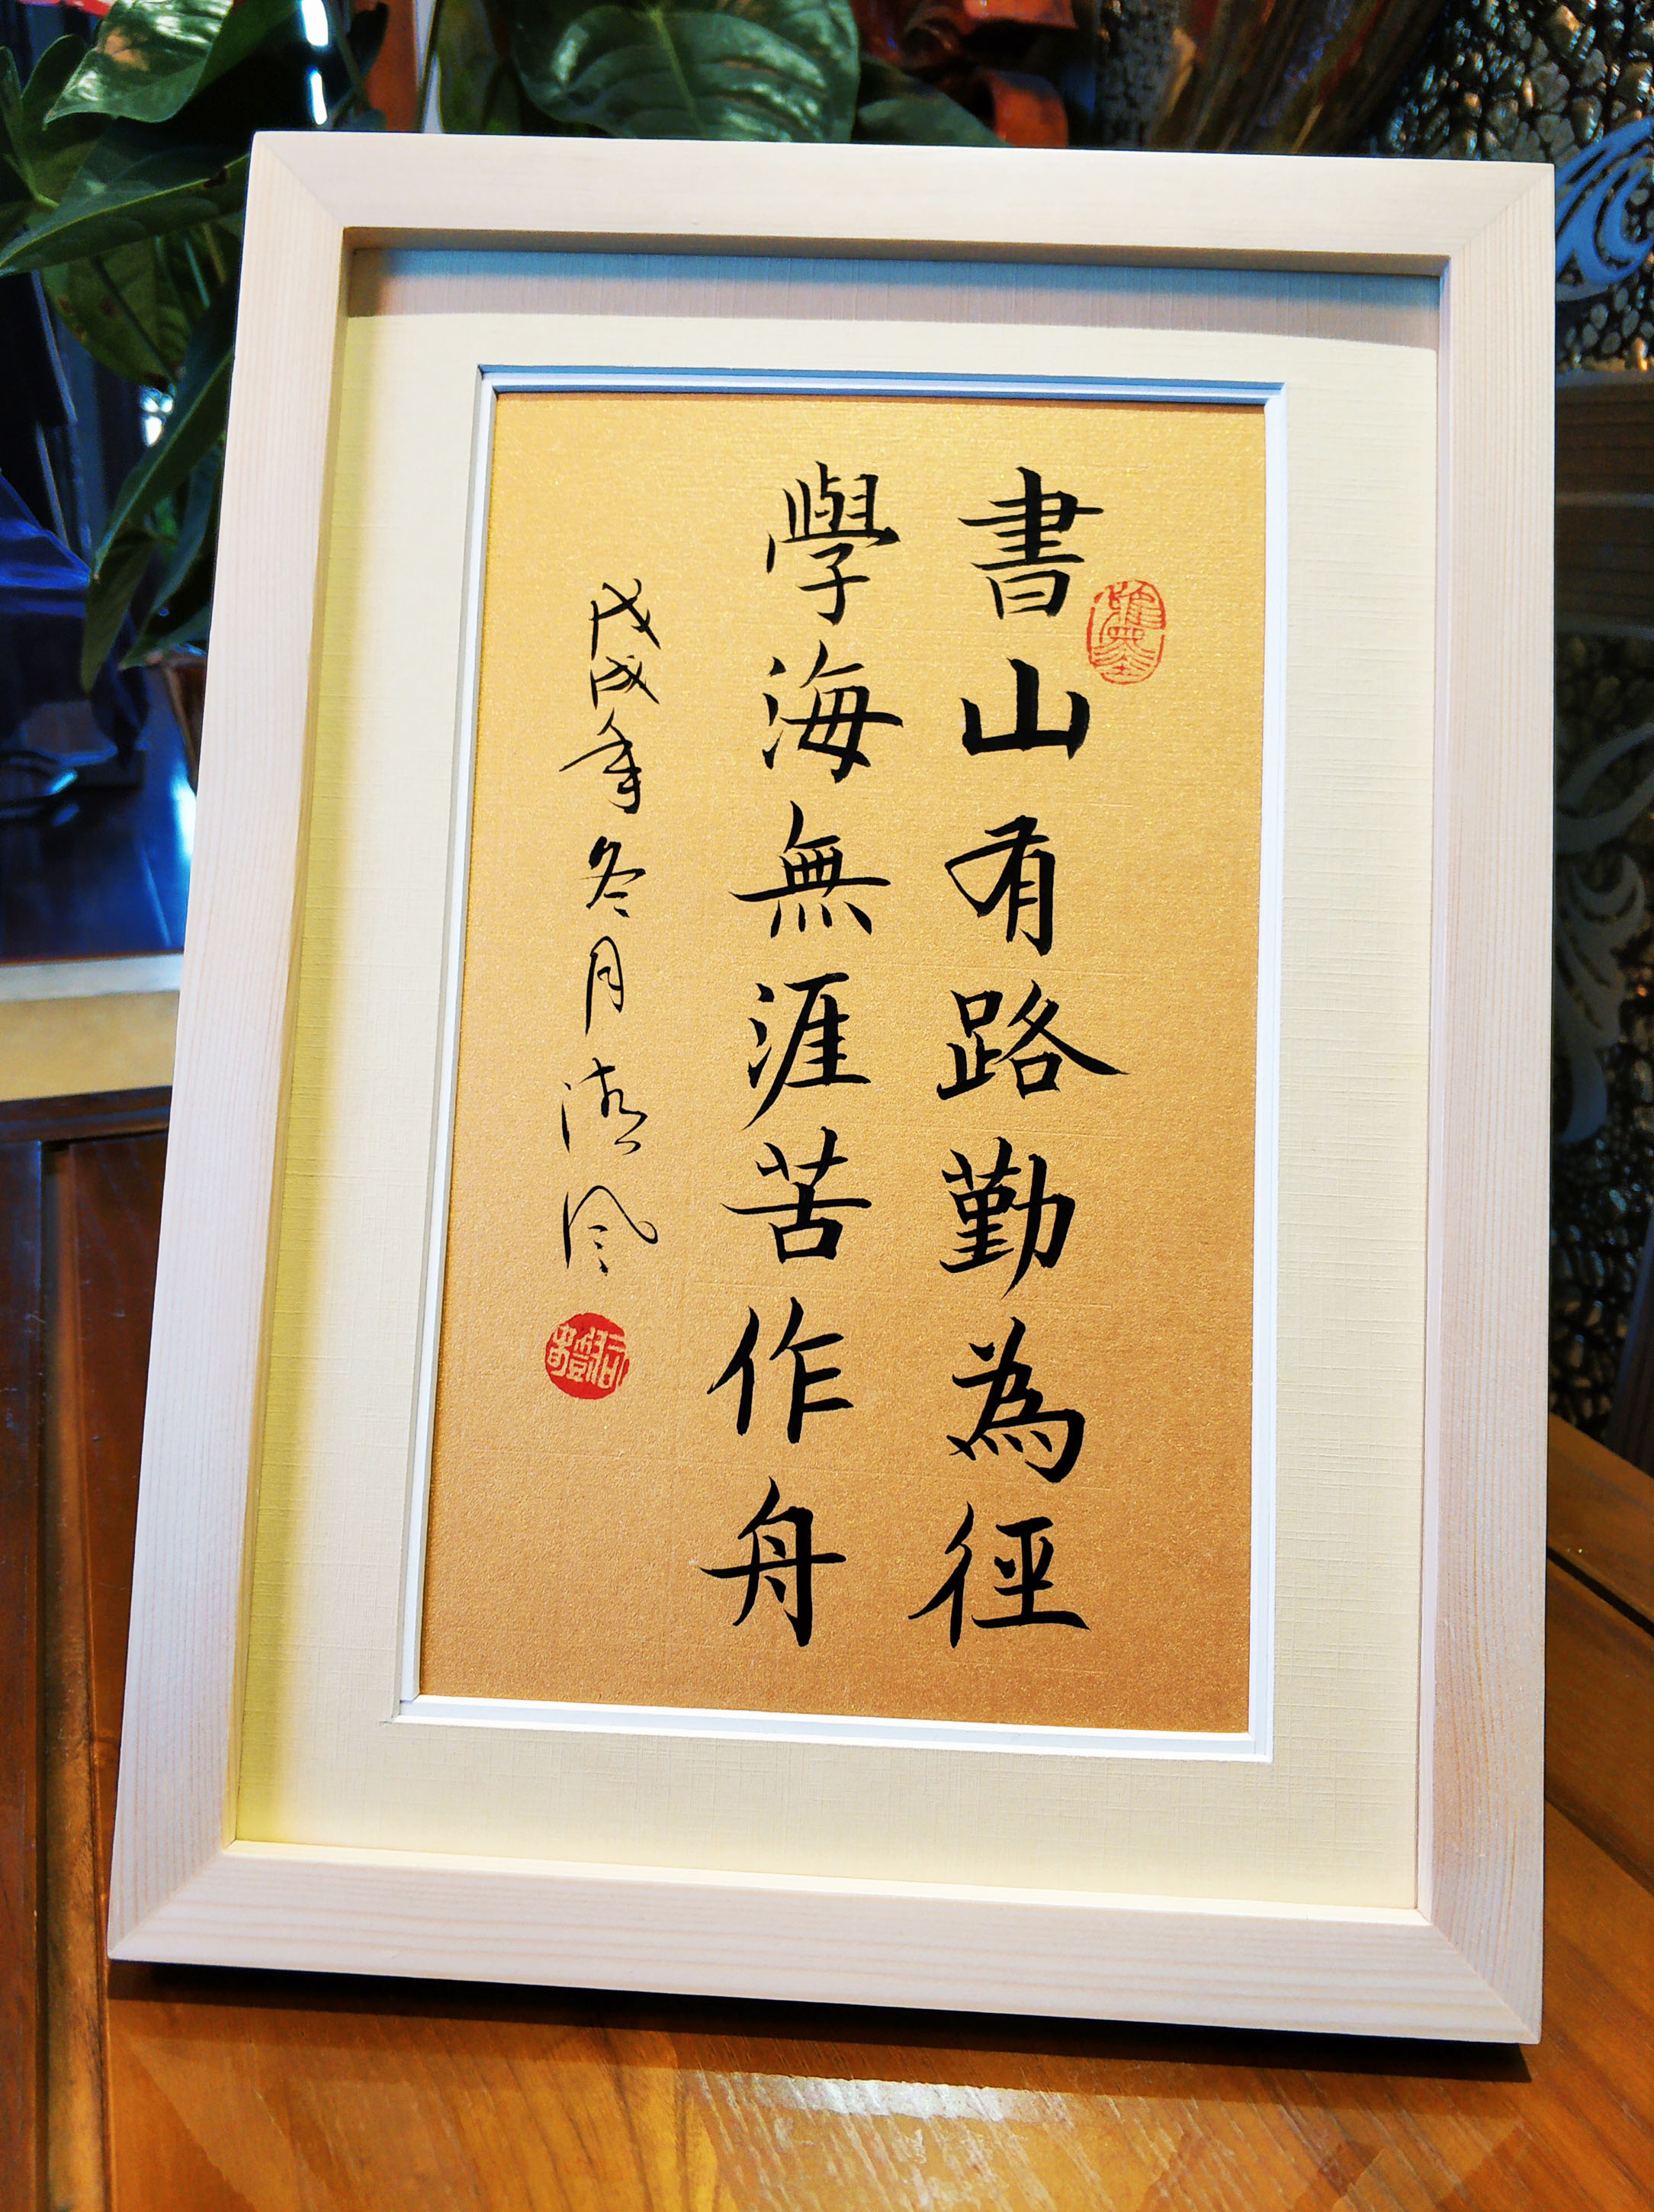 書山有路勤為徑
學海無涯苦作舟
戊戌年冬月清風